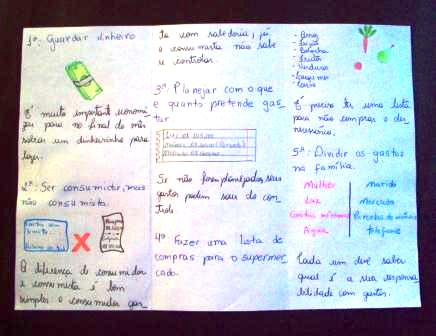 1º- Guardar dinheiro
É muito important economi
zar para no final do mês
sobrar um dinheirinho para
lazer.
2º- Ser consumidor, mas
não consumista.
A diferença do consumidor
e consumista é bem
simples o consumidor gas-
ta com sabedoria, já
o consumista não sabe
se controlar.
3º- Planejar com o que
e quanto pretende gas-
tar
Se não forem planejados seus
gastos podem sair do con
trole
4º Fazer uma lista de
compras para o supermer
cado.
- Arroz
- Feijão
- Bolacha
- Frutas
- Verduras
- Legumes
- Carne
É preciso ter uma lista
para não comprar o des
necessário.
5º- Dividir os gastos
na família.
Mulher marido
Luz Mercado
Água telefone
Cada um deve saber
qual é a sua responsa
bilidade com gastos.